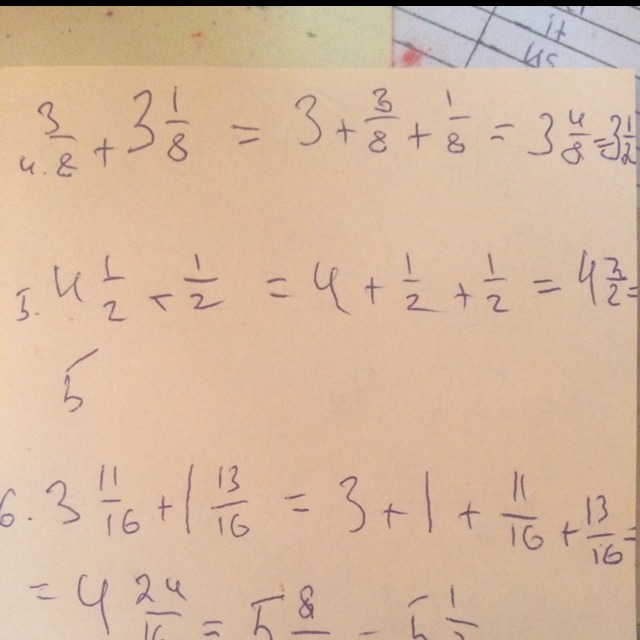 it
us
4. 3/8 + 3 1/8 = 3 + 3/8 + 1/8 = 3 4/8 = 3 1/2
5. 4 1/2 + 1/2 = 4 + 1/2 + 1/2 = 4 2/2 =
5
6. 3 11/16 + 1 13/16 = 3 + 1 + 11/16 + 13/16 =
= 4 24/16 = 5 8 = 5 1